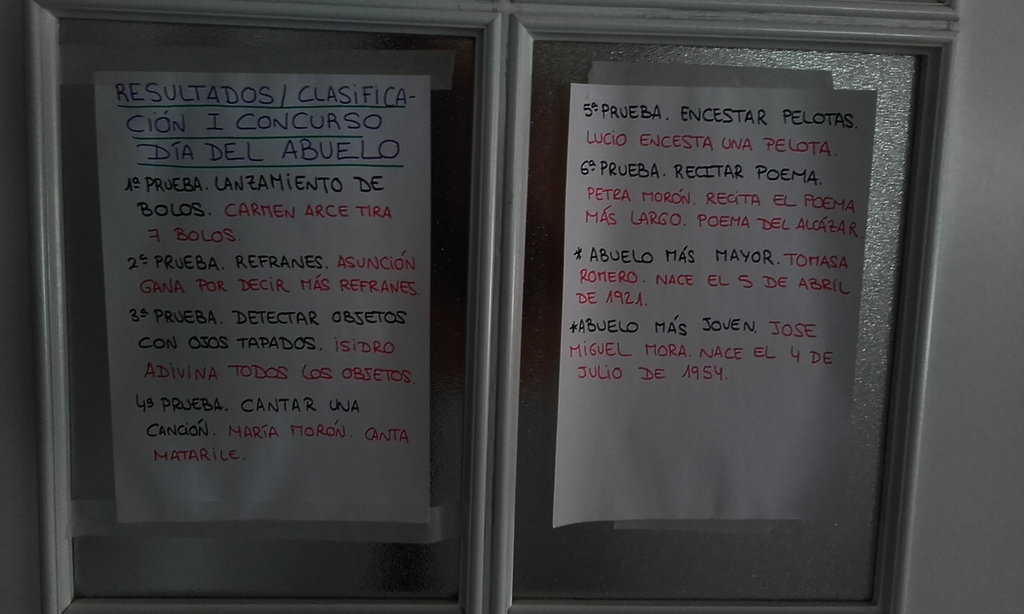 RESULTADOS/CLASIFICA-
CIÓN I CONCURSO
DÍA DEL ABUELO
1ª PRUEBA. LANZAMIENTO DE
BOLOS. CARMEN ARCE TIRA
7 BOLOS.
2ª PRUEBA. REFRANES. ASUNCIÓN
GANA POR DECIR MÁS REFRANES.
3ª PRUEBA. DETECTAR OBJETOS
CON OJOS TAPADOS. ISIDRO
ADIVINA TODOS LOS OBJETOS.
4ª PRUEBA. CANTAR UNA
CANCIÓN. MARÍA MORÓN. CANTA
MATARILE.
5ª PRUEBA. ENCESTAR PELOTAS.
LUCIO ENCESTA UNA PELOTA.
6ª PRUEBA. RECITAR POEMA.
PETRA MORÓN. RECITA EL POEMA
MÁS LARGO. POEMA DEL ALCÁZAR
* ABUELO MÁS MAYOR. TOMASA
ROMERO. NACE EL 5 DE ABRIL
DE 1921.
*ABUELO MÁS JOVEN. JOSE
MIGUEL MORA. NACE EL 4 DE
JULIO DE 1954.